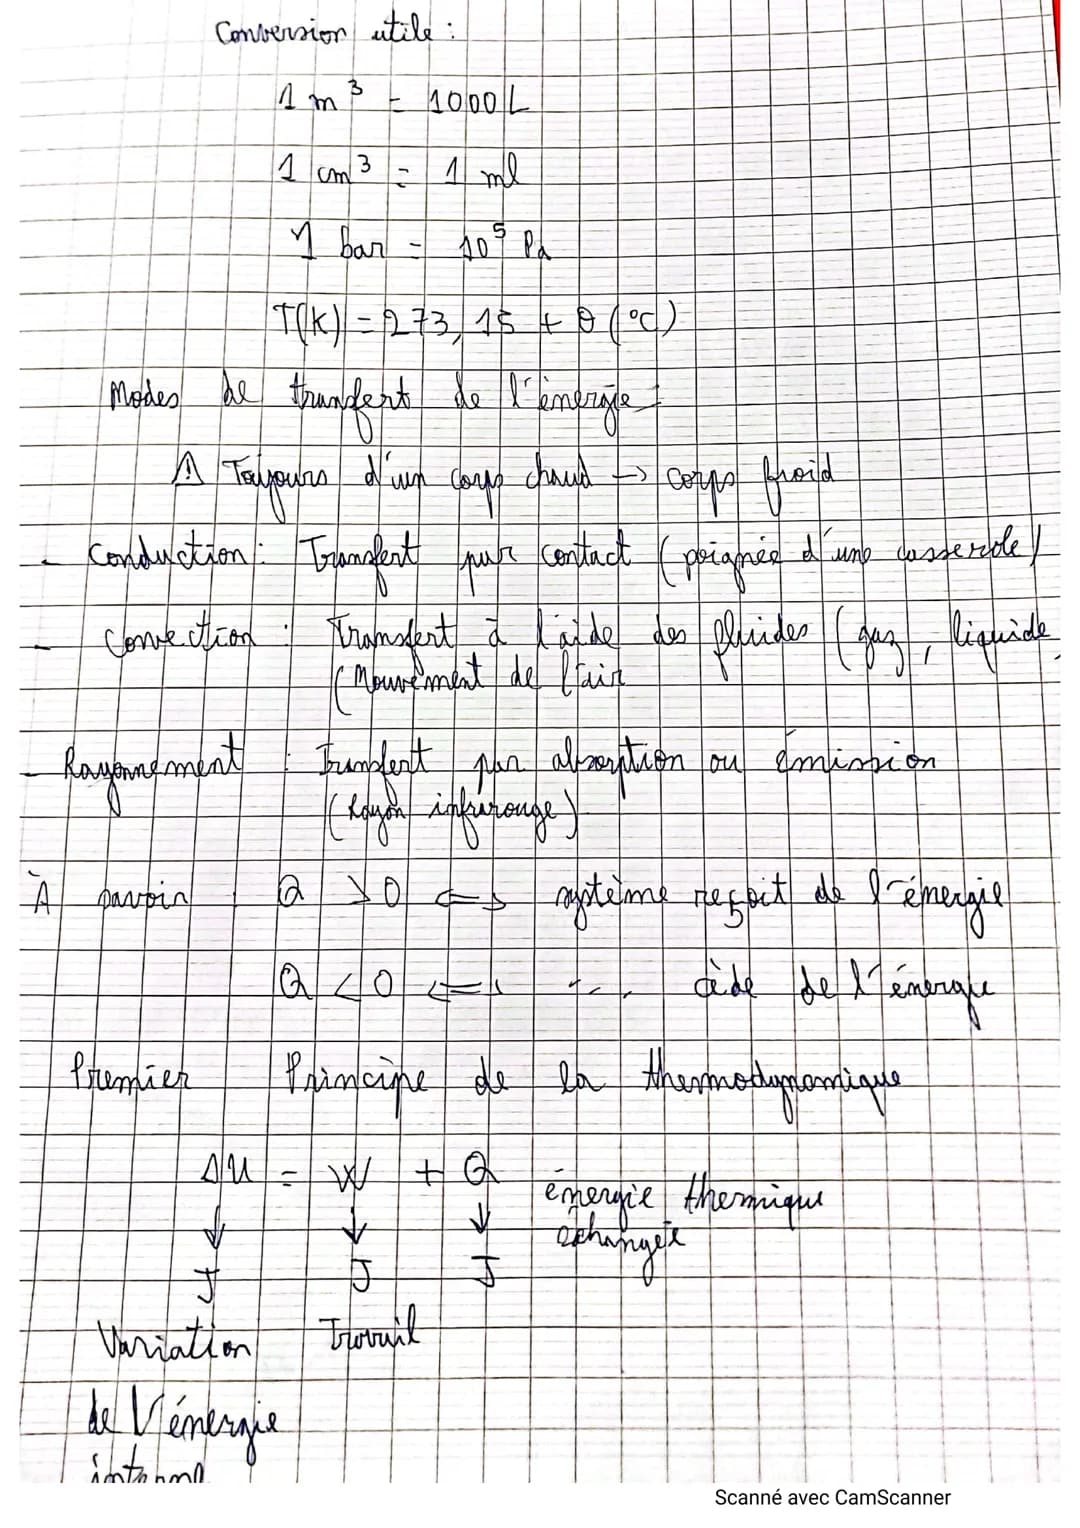 Conversion utile :
1 m³ = 1000 L
1 cm³ = 1 ml
1 bar = 10⁵ Pa
T(K) = 273,15 + θ (°C)
Modes de transfert de l'énergie :
⚠ Toujours d'un corps chaud → corps froid
- Conduction : Transfert par contact (poignée d'une casserole)
- Convection : Transfert à l'aide des fluides (gaz, liquide
(Mouvement de l'air
- Rayonnement : Transfert par absorption ou émission
(Rayon infrarouge)
À savoir : Q > 0 <=> système reçoit de l'énergie
Q < 0 <=> - - - cède de l'énergie
Premier Principe de la thermodynamique
ΔU = W + Q énergie thermique
↓ ↓ ↓ échangée
J J J
Variation Travail
de l'énergie
interne
Scanné avec CamScanner